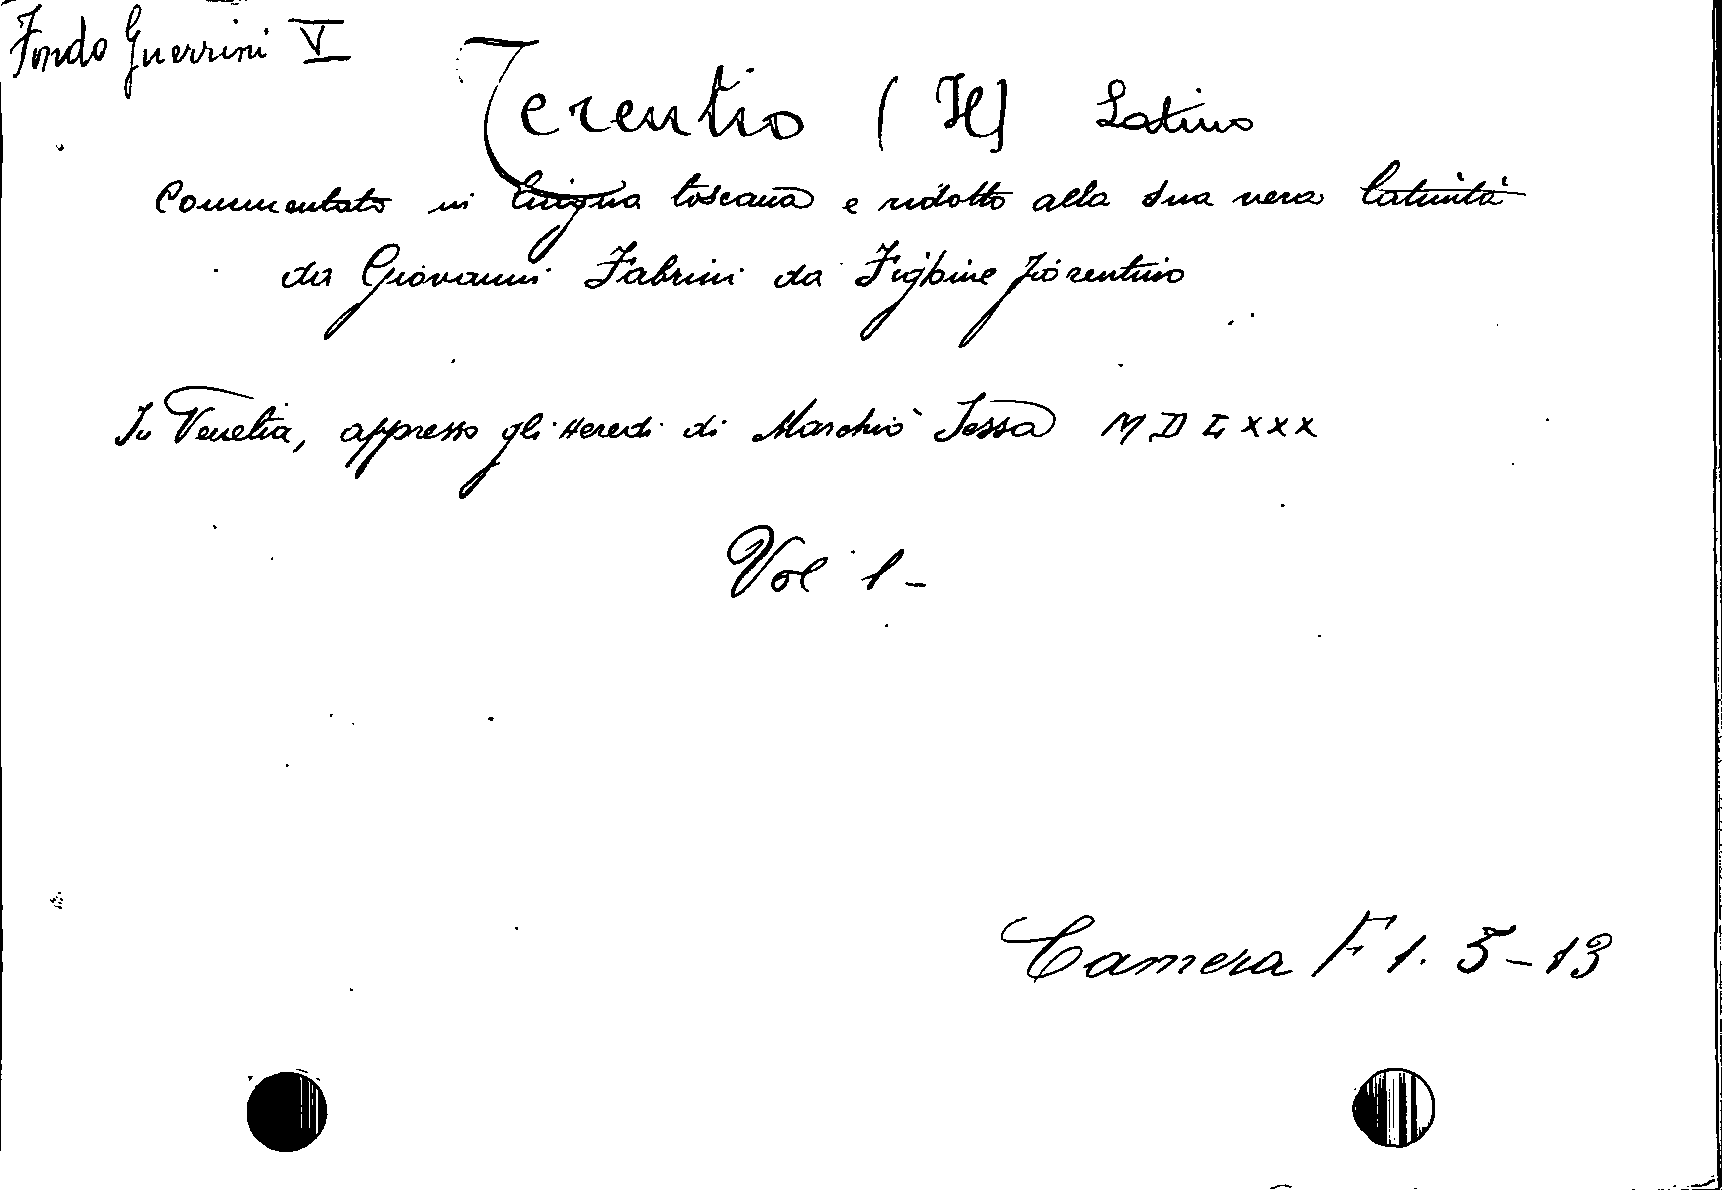 Fondo Guerrini V
Terentio (Il) Latino
Commentato in lingua toscana e ridotto alla sua vera latinità
da Giovanni Fabrini da Fighine fiorentino
In Venetia, appresso gli Heredi di Marchiò Sessa MDLXXX
Vol 1-
Camera F 1. 5-13